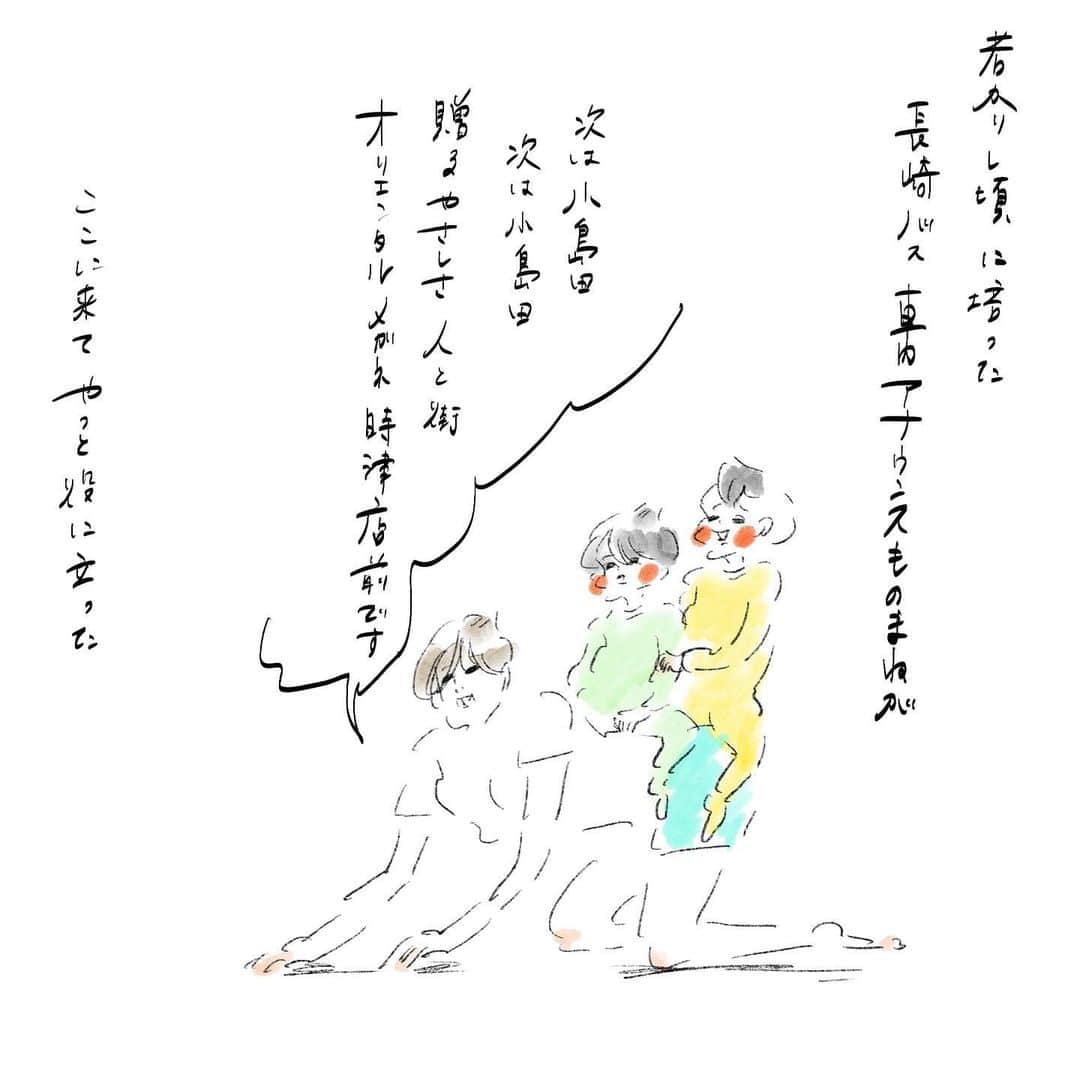 若かりし頃に培った
長崎バス 車内アナウンスものまねが
次は小島田
次は小島田
贈るやさしさ 人と街
オリエンタルメガネ 時津店前です
ここに来て やっと役に立った